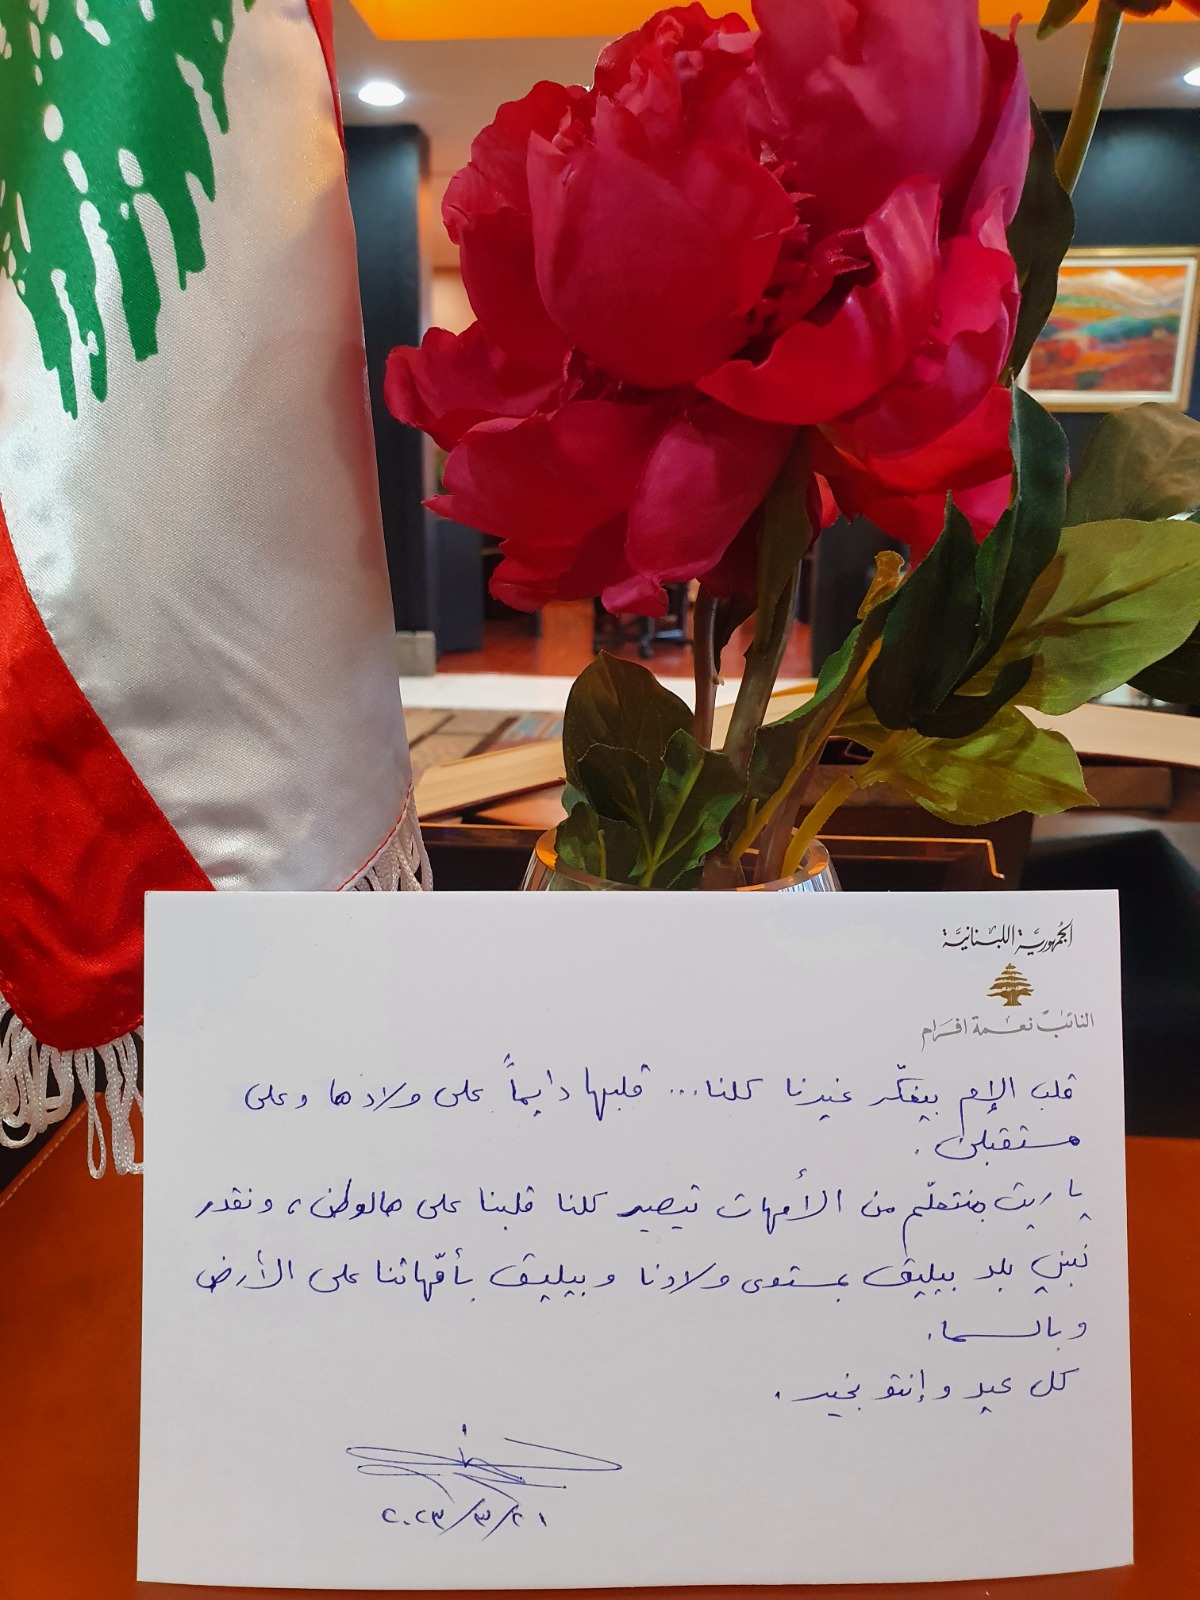 الجمهوريّة اللبنانيّة
النائب نعمة افرام
قلب الإم بيفكّر غيرنا كلنا... قلبها دايماً على ولادها وعلى
مستقبلن.
يا ريت منتعلّم من الأمهات تيصير كلنا قلبنا على هالوطن، ونقدر
نبني بلد بيليق بمستوى ولادنا وبيليق بأمّهاتنا على الأرض
وبالسما.
كل عيد وإنتو بخير.
٢٠٢٣/٣/٢١